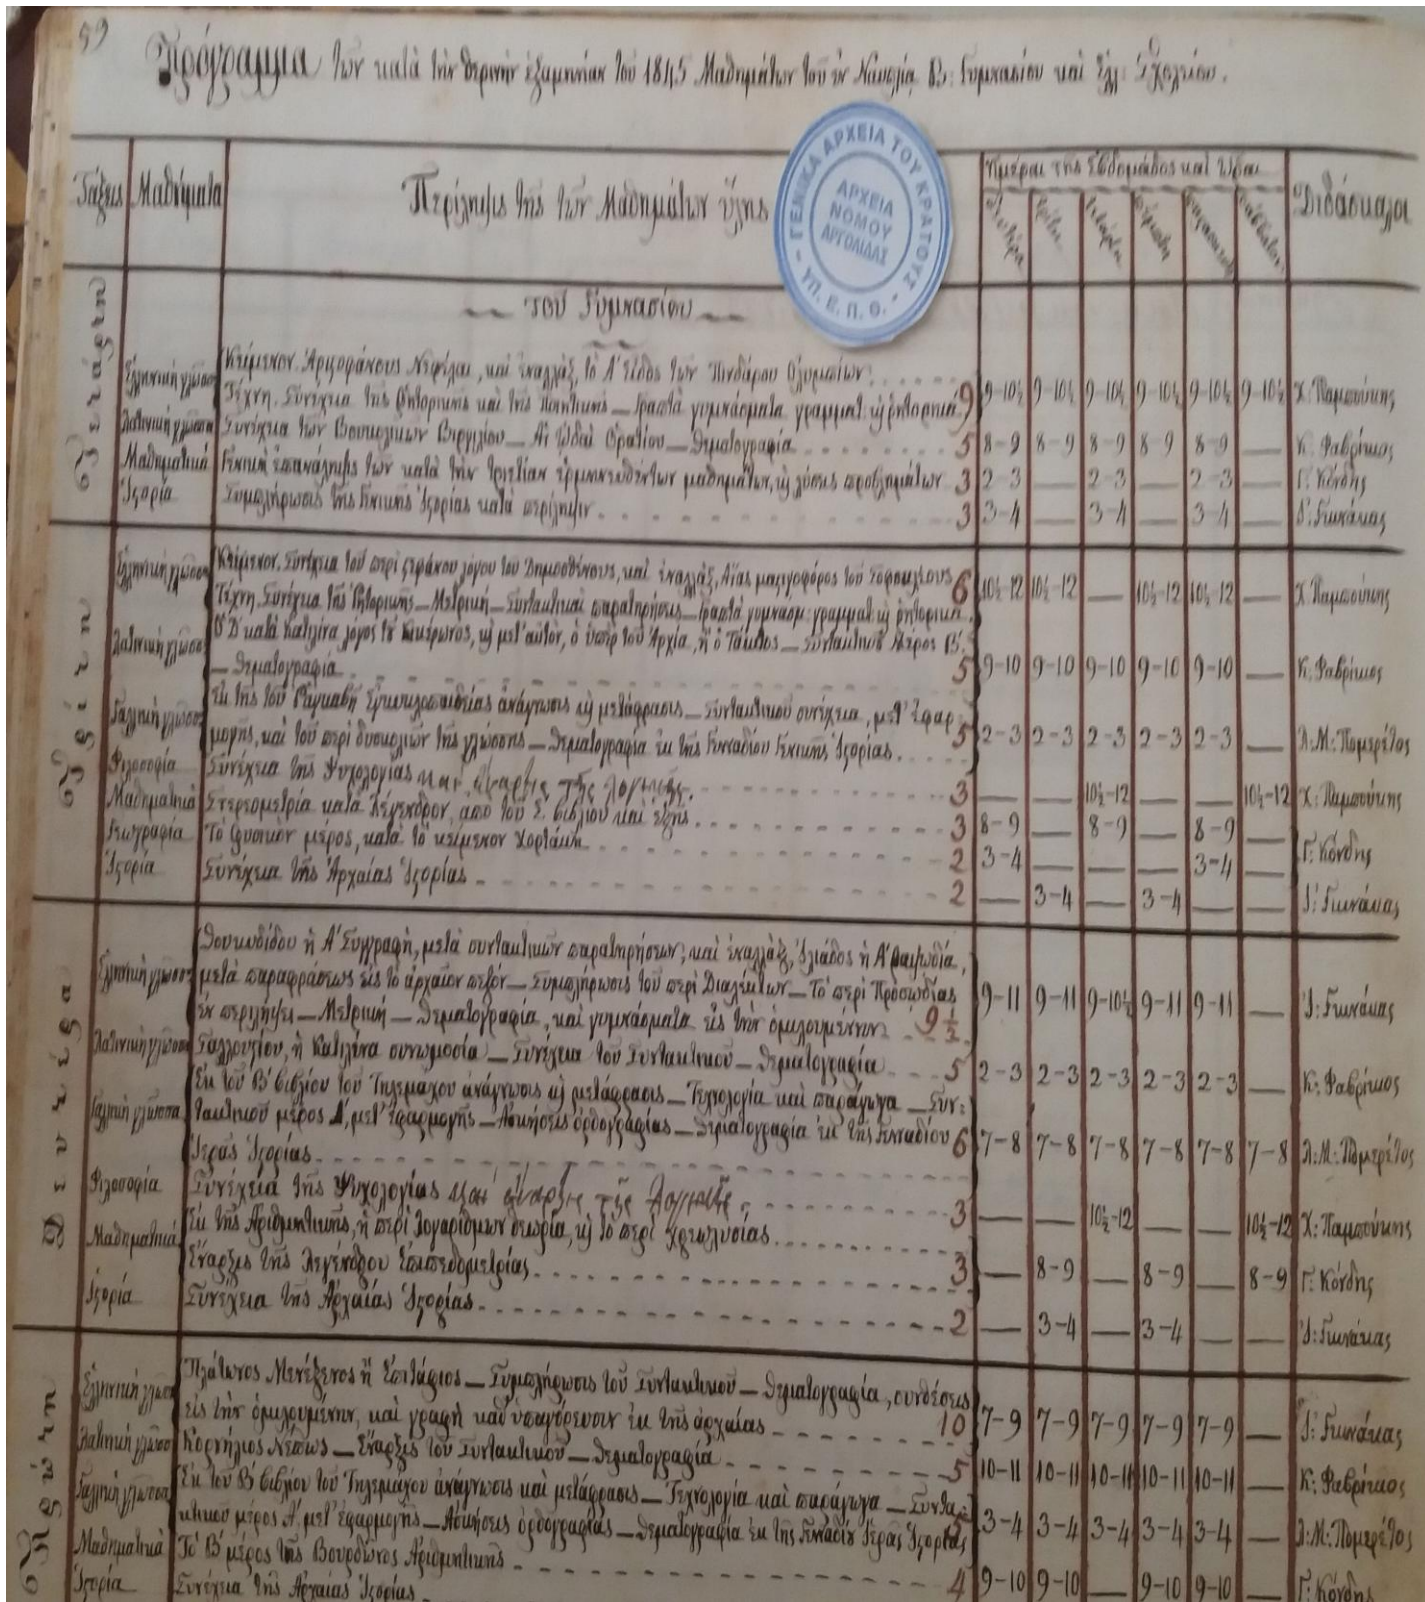 59
Πρόγραμμα τῶν κατὰ τὴν θερινὴν ἑξαμηνίαν τοῦ 1845 Μαθημάτων τοῦ ἐν Ναυπλίᾳ Β: Γυμνασίου καὶ Ἑλλ: Σχολείου.
Τάξεις Μαθήματα Περίληψις τῆς τῶν Μαθημάτων ὕλης Ἡμέραι τῆς Ἑβδομάδος καὶ Ὧραι Διδάσκαλοι
Δευτέρα Τρίτη Τετάρτη Πέμπτη Παρασκευὴ Σάββατον
ΓΕΝΙΚΑ ΑΡΧΕΙΑ ΤΟΥ ΚΡΑΤΟΥΣ - ΥΠ. Ε. Π. Θ. -
ΑΡΧΕΙΑ
ΝΟΜΟΥ
ΑΡΓΟΛΙΔΑΣ
τοῦ Γυμνασίου
Τετάρτη
Ἑλληνικὴ γλῶσσα Κείμενον. Ἀριστοφάνους Νεφέλαι, καὶ ἐναλλὰξ, τὸ Α' εἶδος τῶν Πινδάρου Ὀλυμπίων.
Τέχνη. Συνέχεια τῆς Ῥητορικῆς καὶ τῆς Ποιητικῆς — Γραπτὰ γυμνάσματα γραμματ: κ ῥητορικά 9 9-10½ 9-10½ 9-10½ 9-10½ 9-10½ 9-10½ Χ: Παμπούκης
Λατινικὴ γλῶσσα Συνέχεια τῶν Βουκολικῶν Βιργιλίου — Αἱ ᾨδαὶ Ὁρατίου — Θεματογραφία 5 8-9 8-9 8-9 8-9 8-9 — Κ: Φαβρίκιος
Μαθηματικὰ Γενικὴ ἐπανάληψις τῶν κατὰ τὴν τριετίαν ἑρμηνευθέντων μαθημάτων, κ λύσεις προβλημάτων 3 2-3 — 2-3 — 2-3 — Γ: Κόνδης
Ἱστορία Συμπλήρωσις τῆς Γενικῆς Ἱστορίας κατὰ περίληψιν 3 3-4 — 3-4 — 3-4 — Δ: Γεωνάκας
Τρίτη
Ἑλληνικὴ γλῶσσα Κείμενον. Συνέχεια τοῦ περὶ στεφάνου λόγου τοῦ Δημοσθένους, καὶ ἐναλλὰξ, Αἴας μαστιγοφόρος τοῦ Σοφοκλέους 6 10½-12 10½-12 — 10½-12 10½-12 — Χ: Παμπούκης
Τέχνη. Συνέχεια τῆς Ῥητορικῆς — Μετρικὴ — Συντακτικαὶ παρατηρήσεις — Γραπτὰ γυμνάσμ: γραμματ: κ ῥητορικά.
Λατινικὴ γλῶσσα Ὁ Δ' κατὰ Κατιλίνα λόγος τοῦ Κικέρωνος, κ μετ' αὐτὸν, ὁ ὑπὲρ τοῦ Ἀρχία, ἢ ὁ Τάκιτος — Συντακτικοῦ Μέρος Β'.
— Θεματογραφία 5 9-10 9-10 9-10 9-10 9-10 — Κ: Φαβρίκιος
Γαλλικὴ γλῶσσα Ἐκ τῆς τοῦ Ῥαγκαβῆ Ἐγκυκλοπαιδείας ἀνάγνωσις κ μετάφρασις — Συντακτικοῦ συνέχεια, μετ' Ἐφαρ-
μογῆς, καὶ τοῦ περὶ δυσκολιῶν τῆς γλώσσης — Θεματογραφία ἐκ τῆς Γενναδίου Γενικῆς Ἱστορίας. 5 2-3 2-3 2-3 2-3 2-3 — Λ: Μ: Πομερέτος
Φιλοσοφία Συνέχεια τῆς Ψυχολογίας καὶ ἔναρξις τῆς λογικῆς 3 — — 10½-12 — — 10½-12 Χ: Παμπούκης
Μαθηματικὰ Στερεομετρία κατὰ Λεγένδρον, ἀπὸ τοῦ Ε' βιβλίου καὶ ἑξῆς 3 8-9 — 8-9 — 8-9 —
Γεωγραφία Τὸ φυσικὸν μέρος, κατὰ τὸ κείμενον Χορτάκη 2 3-4 — — — 3-4 — Γ: Κόνδης
Ἱστορία Συνέχεια τῆς Ἀρχαίας Ἱστορίας 2 — 3-4 — 3-4 — — Δ: Γεωνάκας
Δευτέρα
Ἑλληνικὴ γλῶσσα Θουκυδίδου ἡ Α' Συγγραφὴ, μετὰ συντακτικῶν παρατηρήσεων, καὶ ἐναλλὰξ, Ἰλιάδος ἡ Α' ῥαψωδία,
μετὰ παραφράσεως εἰς τὸ ἀρχαῖον πεζόν — Συμπλήρωσις τοῦ περὶ Διαλέκτων — Τὸ περὶ Προσωδίας
ἐν περιλήψει — Μετρικὴ — Θεματογραφία, καὶ γυμνάσματα εἰς τὴν ὁμιλουμένην 9½ 9-11 9-11 9-10½ 9-11 9-11 — Δ: Γεωνάκας
Λατινικὴ γλῶσσα Σαλλουστίου, ἡ Κατιλίνα συνωμοσία — Συνέχεια τοῦ Συντακτικοῦ — Θεματογραφία 5 2-3 2-3 2-3 2-3 2-3 — Κ: Φαβρίκιος
Γαλλικὴ γλῶσσα Ἐκ τοῦ Β' βιβλίου τοῦ Τηλεμάχου ἀνάγνωσις κ μετάφρασις — Τεχνολογία καὶ παράγωγα — Συν-
τακτικοῦ μέρος Α', μετ' ἐφαρμογῆς — Ἀσκήσεις ὀρθογραφίας — Θεματογραφία ἐκ τῆς Γενναδίου 6 7-8 7-8 7-8 7-8 7-8 7-8 Λ: Μ: Πομερέτος
Ἱερᾶς Ἱστορίας
Φιλοσοφία Συνέχεια τῆς Ψυχολογίας καὶ ἔναρξις τῆς λογικῆς 3 — — 10½-12 — — 10½-12 Χ: Παμπούκης
Μαθηματικὰ Ἐκ τῆς Ἀριθμητικῆς, ἡ περὶ λογαρίθμων θεωρία, κ τὸ περὶ χρεωλυσίας
Ἔναρξις τῆς Λεγένδρου Ἐπιπεδομετρίας 3 — 8-9 — 8-9 — 8-9 Γ: Κόνδης
Ἱστορία Συνέχεια τῆς Ἀρχαίας Ἱστορίας 2 — 3-4 — 3-4 — — Δ: Γεωνάκας
Πρώτη
Ἑλληνικὴ γλῶσσα Πλάτωνος Μενέξενος ἢ Ἐπιτάφιος — Συμπλήρωσις τοῦ Συντακτικοῦ — Θεματογραφία, συνθέσεις
εἰς τὴν ὁμιλουμένην, καὶ γραφὴ καθ' ὑπαγόρευσιν ἐκ τῆς ἀρχαίας 10 7-9 7-9 7-9 7-9 7-9 — Δ: Γεωνάκας
Λατινικὴ γλῶσσα Κορνήλιος Νέπως — Ἔναρξις τοῦ Συντακτικοῦ — Θεματογραφία 5 10-11 10-11 10-11 10-11 10-11 — Κ: Φαβρίκιος
Γαλλικὴ γλῶσσα Ἐκ τοῦ Β' βιβλίου τοῦ Τηλεμάχου ἀνάγνωσις καὶ μετάφρασις — Τεχνολογία καὶ παράγωγα — Συντα-
κτικοῦ μέρος Α', μετ' ἐφαρμογῆς — Ἀσκήσεις ὀρθογραφίας — Θεματογραφία ἐκ τῆς Γενναδίου Ἱερᾶς Ἱστορίας 3-4 3-4 3-4 3-4 3-4 — Λ: Μ: Πομερέτος
Μαθηματικὰ Τὸ Β' μέρος τῆς Βουρδῶνος Ἀριθμητικῆς 4 9-10 9-10 — 9-10 9-10 — Γ: Κόνδης
Ἱστορία Συνέχεια τῆς Ἀρχαίας Ἱστορίας